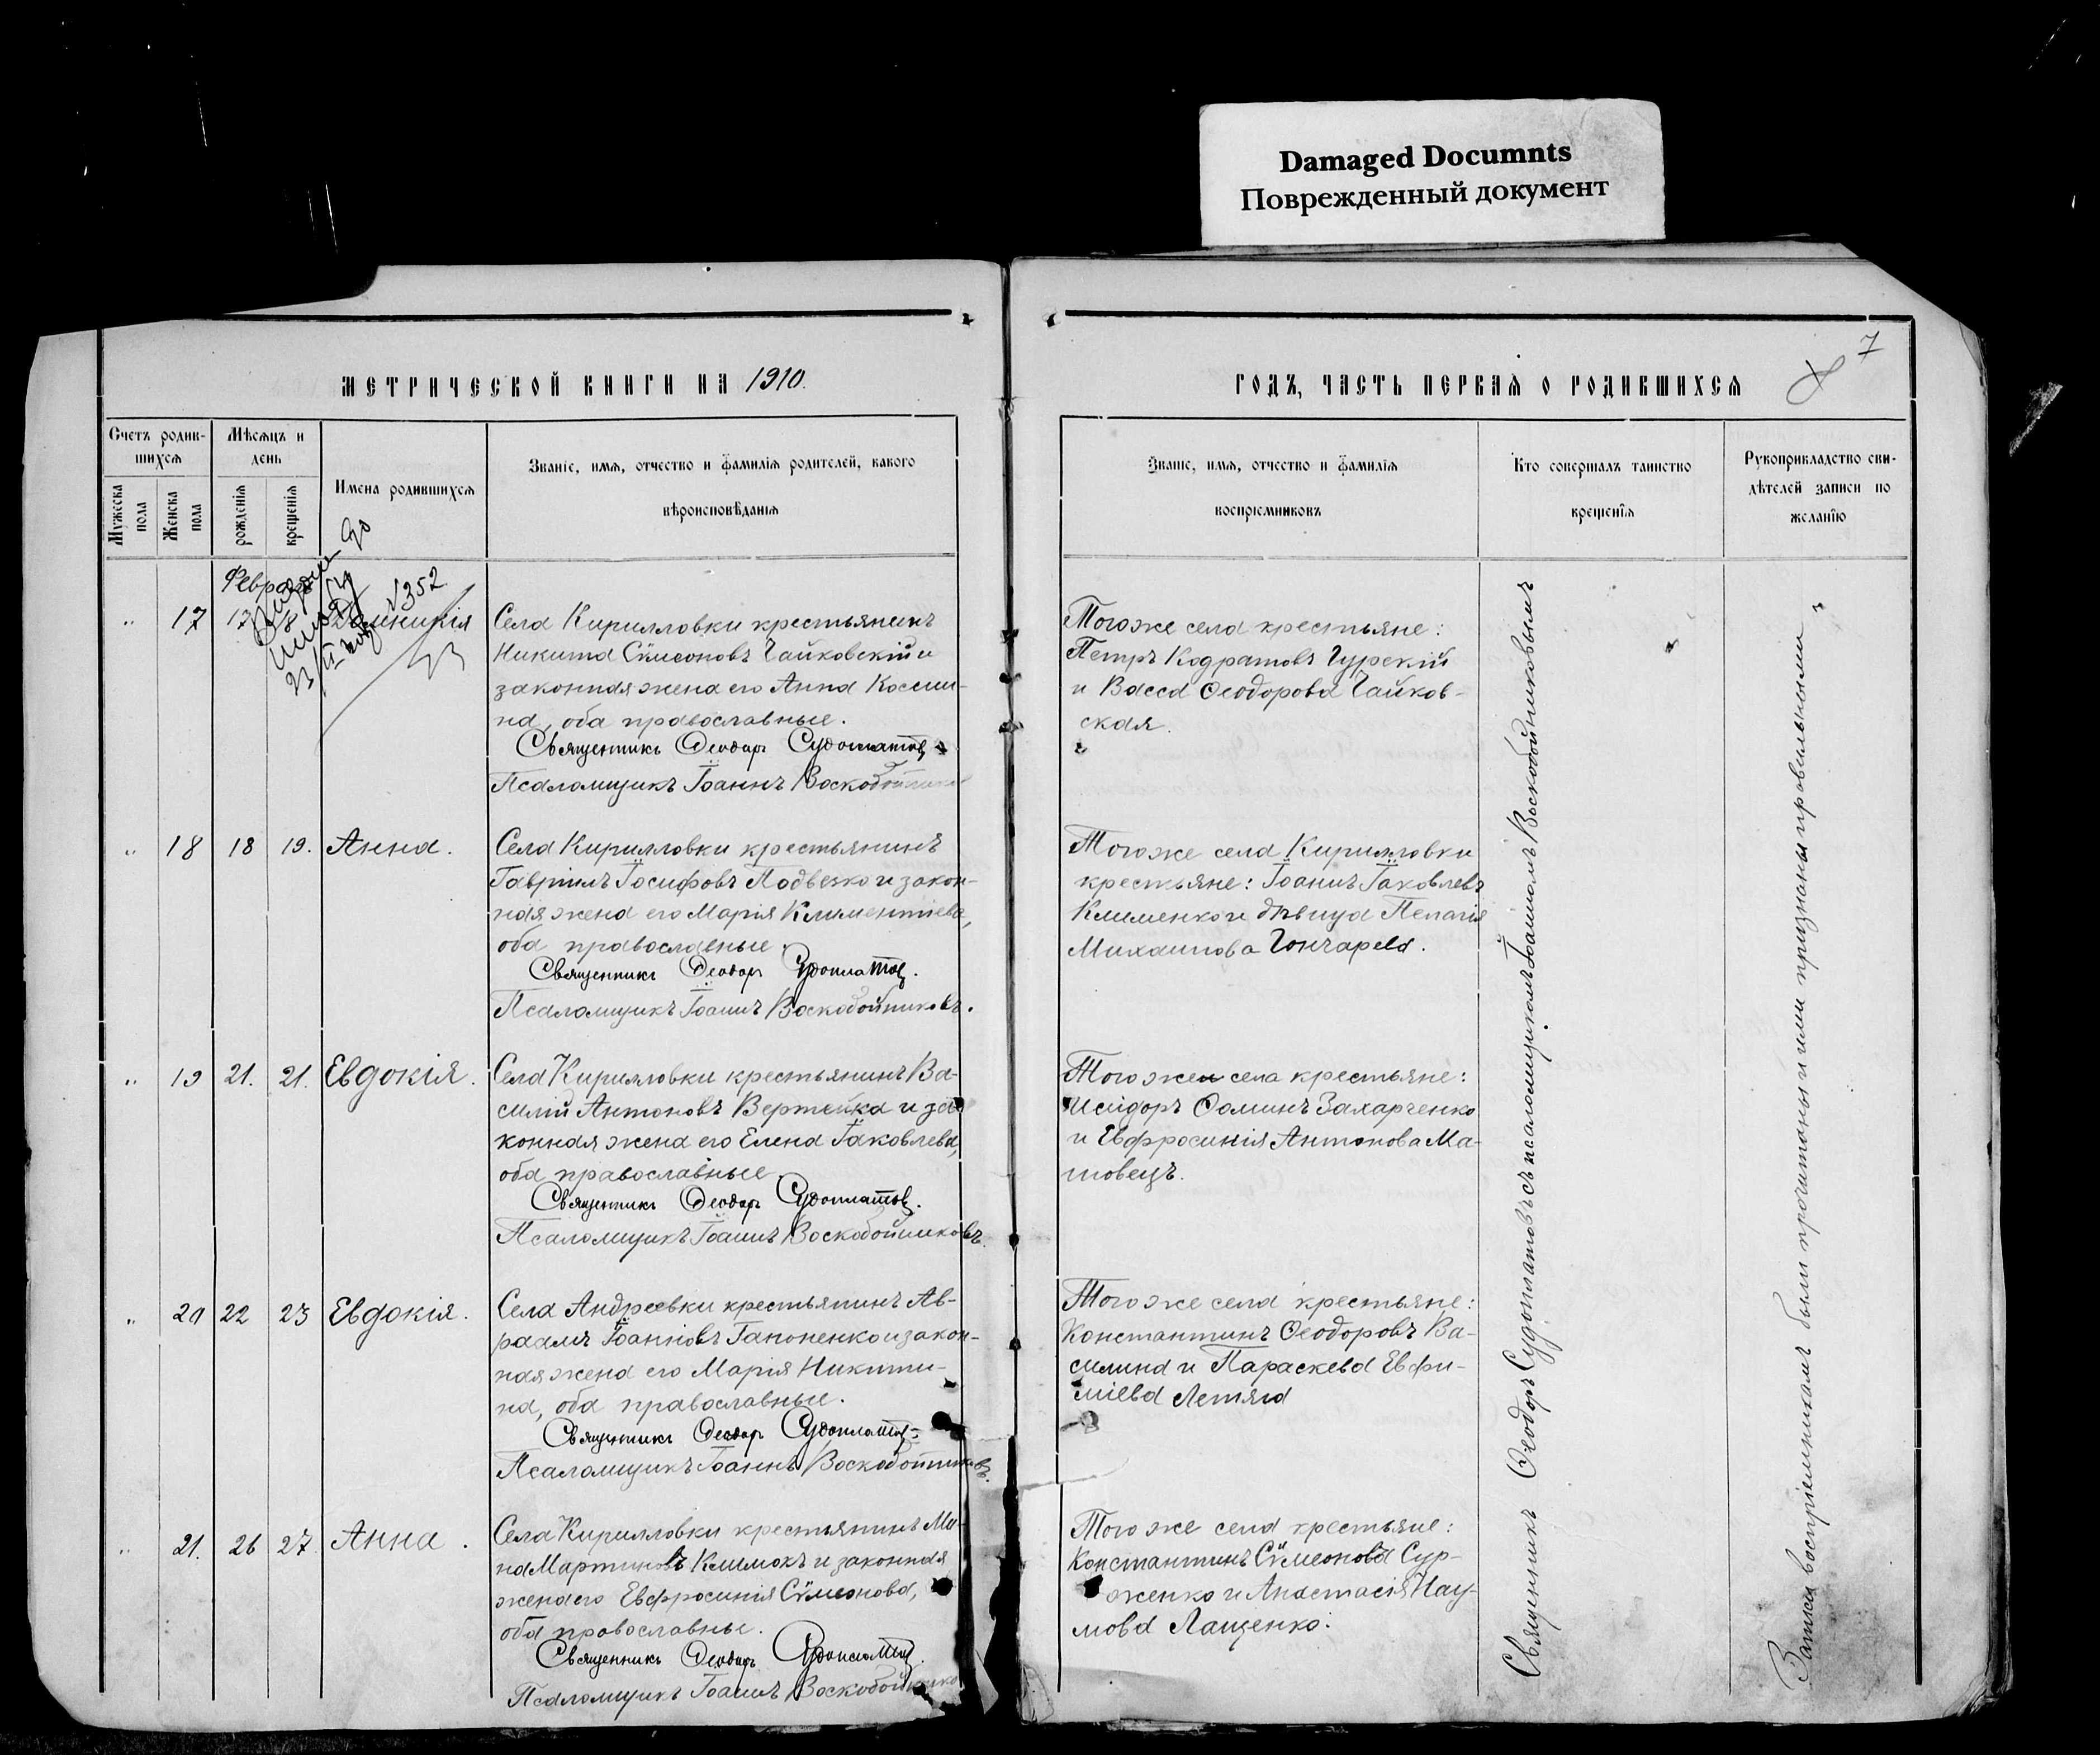 Damaged Documnts
Поврежденный документ
7
МЕТРИЧЕСКОЙ КНИГИ НА 1910.
ГОДЪ, ЧАСТЬ ПЕРВАЯ О РОДИВШИХСЯ
Счетъ родив-
шихся
Мужеска пола
Женска пола
Мѣсяцъ и
день
рожденія
крещенія
Имена родившихся
Званіе, имя, отчество и фамилія родителей, какого
вѣроисповѣданія
Званіе, имя, отчество и фамилія
воспріемниковъ
Кто совершалъ таинство
крещенія
Рукоприкладство сви-
дѣтелей записи по
желанію
1352
17
Села Кирилловки крестьянинъ
Никита Сѵмеоновъ Чайковскій и
законная жена его Анна Косми-
на, оба православные.
Священникъ Ѳеодоръ Судоплатовъ
Псаломщикъ Іоаннъ Воскобойников
Тогоже села крестьяне:
Петръ Кодратовъ Гурскій
и Васса Ѳеодорова Чайков-
ская.
" 18 18 19. Анна.
Села Кирилловки крестьянинъ
Гавріилъ Іосифовъ Подвезко и закон-
ная жена его Марія Климентіева,
оба православные.
Священникъ Ѳеодоръ Судоплатовъ.
Псаломщикъ Іоаннъ Воскобойниковъ.
Тогоже села Кирилловки
крестьяне: Іоаннъ Іаковлевъ
Клименко и дѣвица Пелагія
Михаилова Гончарева.
" 19 21. 21. Евдокія.
Села Кирилловки крестьянинъ Ва-
силій Антоновъ Вертейка и за-
конная жена его Елена Іаковлева,
оба православные
Священникъ Ѳеодоръ Судоплатовъ.
Псаломщикъ Іоаннъ Воскобойниковъ.
Тогоже села крестьяне:
Исидоръ Ѳоминъ Захарченко
и Евфросинія Антонова Ма-
товецъ.
" 20 22 23 Евдокія.
Села Андреевки крестьянинъ Ав-
раамъ Іоанновъ Гапоненко и закон-
ная жена его Марія Никити-
на, оба православные.
Священникъ Ѳеодоръ Судоплатовъ.
Псаломщикъ Іоаннъ Воскобойниковъ.
Того же села крестьяне:
Константинъ Ѳеодоровъ Ва-
силина и Параскева Евфи-
міева Летяга
" 21. 26 27. Анна.
Села Кирилловки крестьянинъ Ми-
на Мартиновъ Климокъ и законная
жена его Евфросинія Сѵмеонова,
оба православные.
Священникъ Ѳеодоръ Судоплатовъ.
Псаломщикъ Іоаннъ Воскобойнико
Того же села крестьяне:
Константинъ Сѵмеонова Сур-
женко и Анастасія Нау-
мова Лащенко.
Священникъ Ѳеодоръ Судоплатовъ съ псаломщикомъ Іоанномъ Воскобойниковымъ
Записи воспріемникамъ были прочитаны и ими признаны правильными